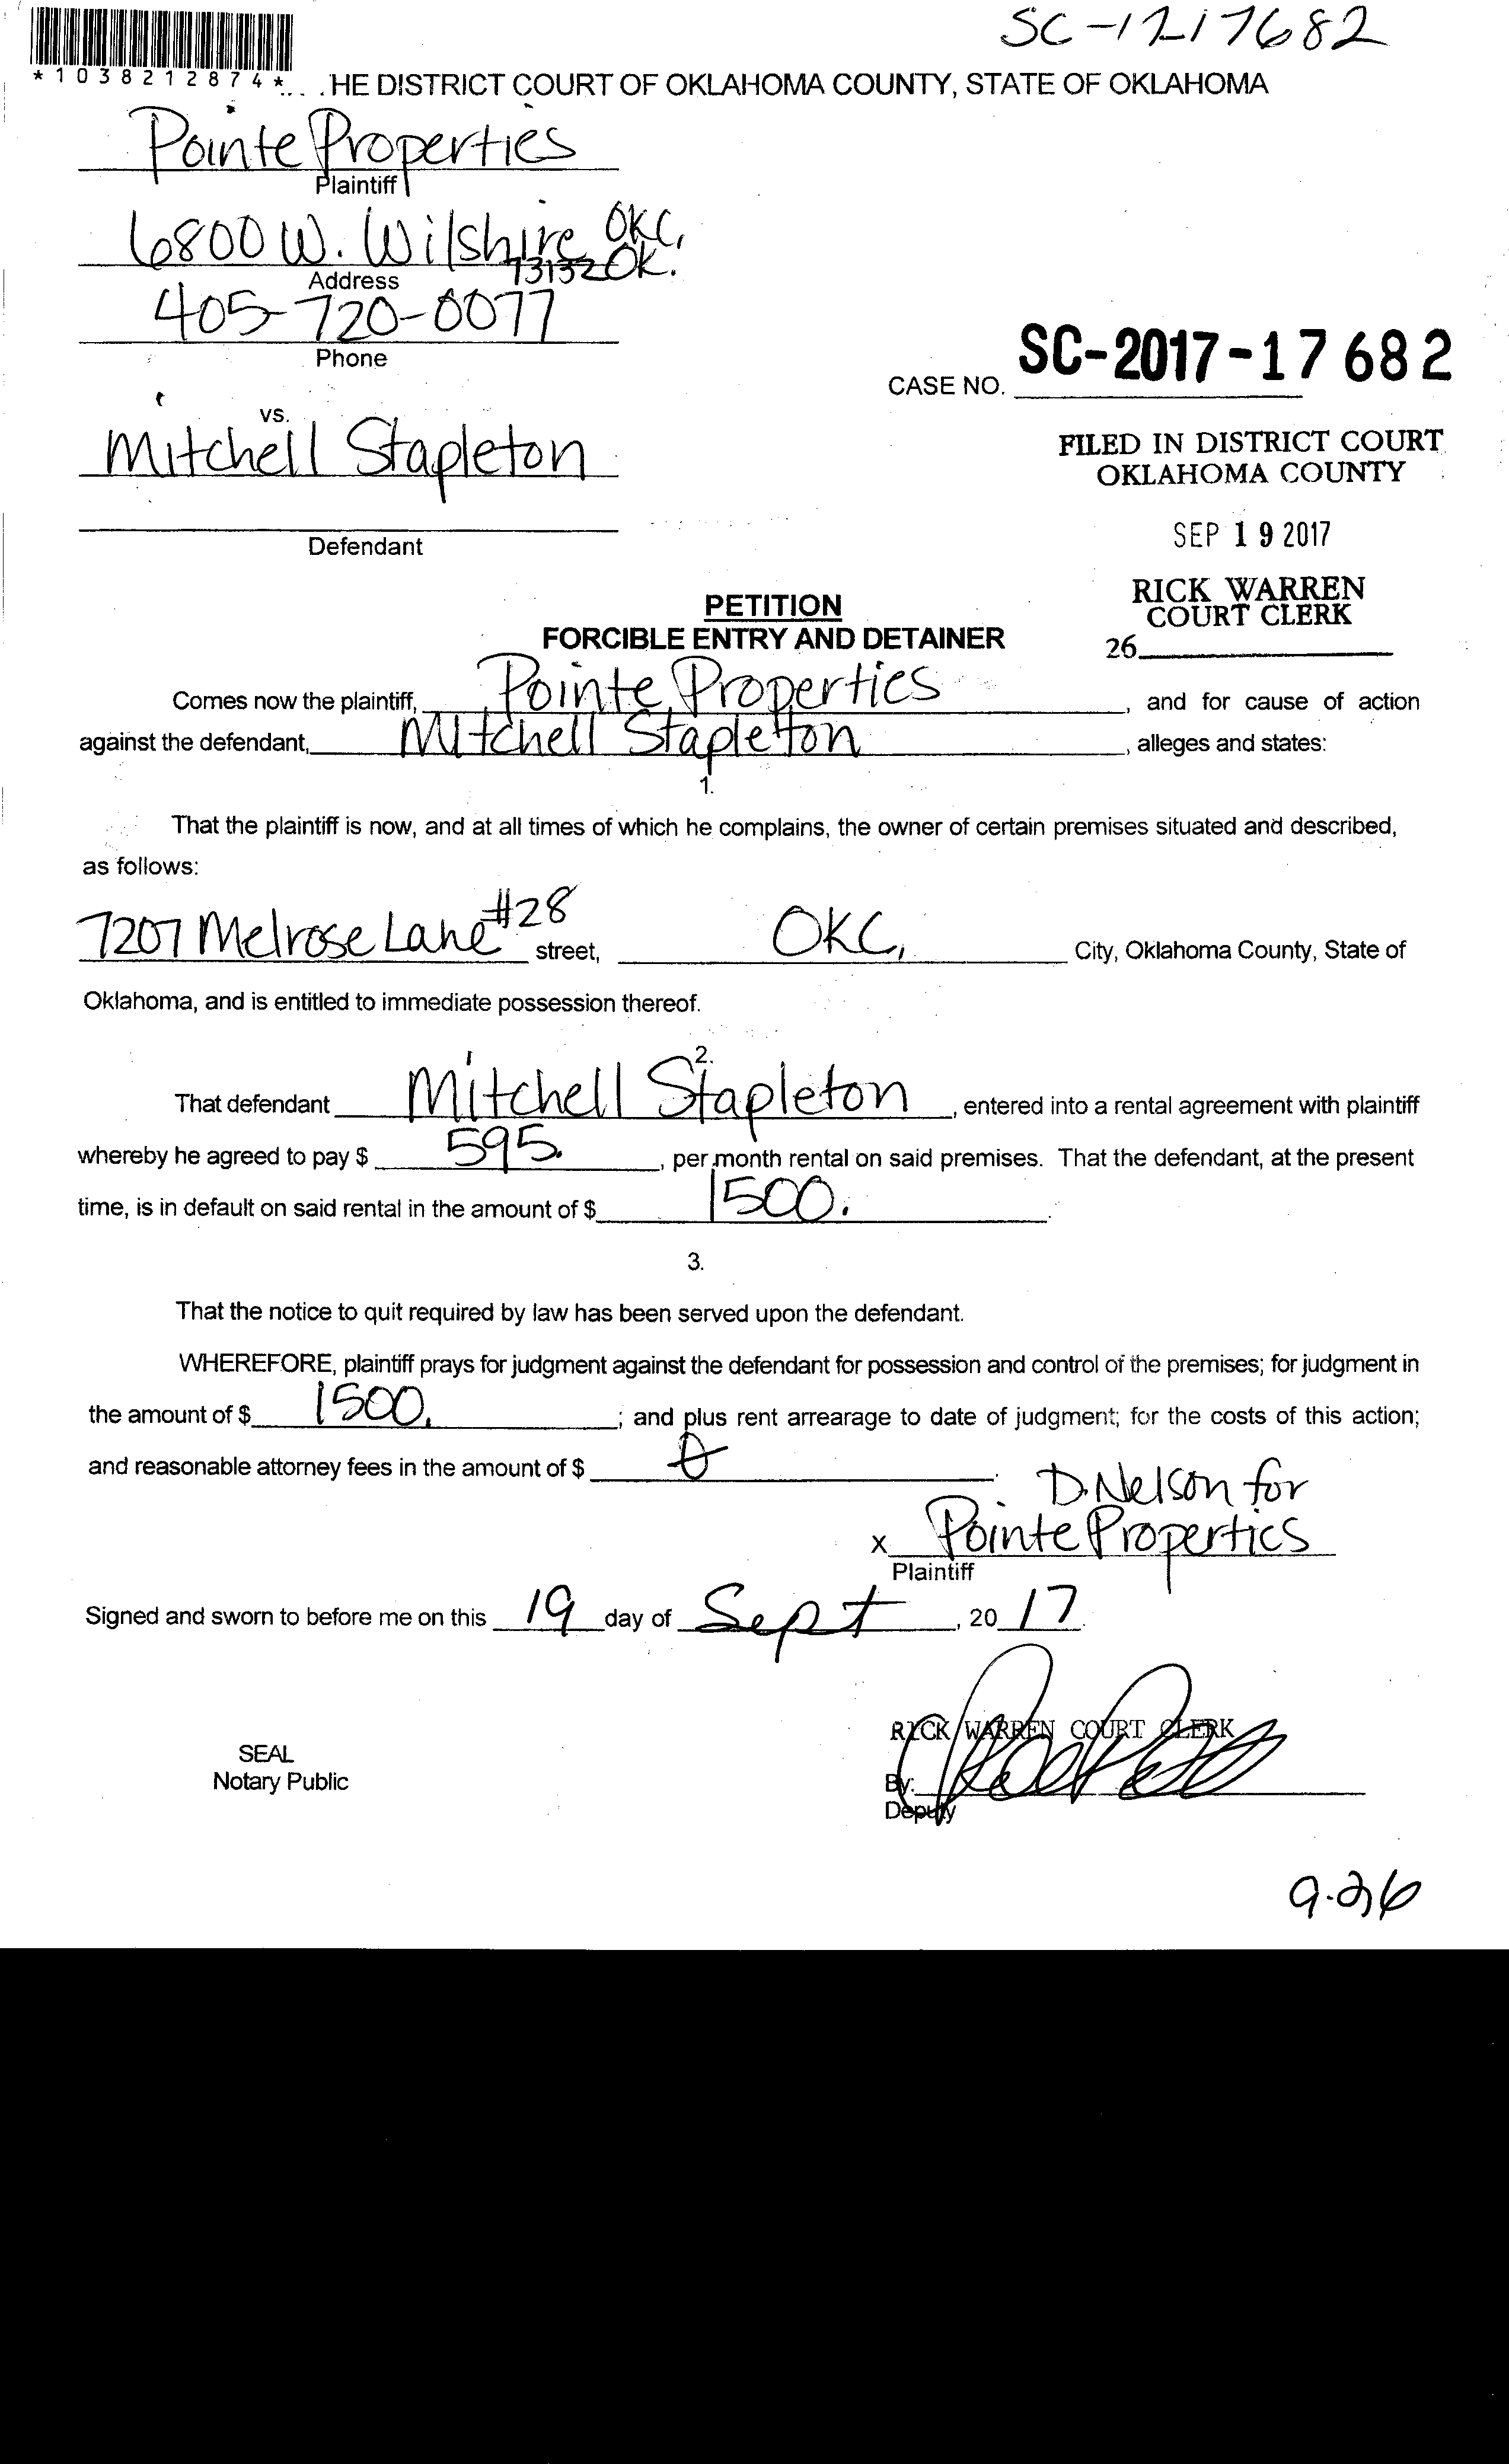 SC-1217682
*1038212874*... .HE DISTRICT COURT OF OKLAHOMA COUNTY, STATE OF OKLAHOMA
Pointe Properties
Plaintiff
6800 W. Wilshire OKC,
73132 OK.
Address
405-720-0077
Phone
CASE NO. SC-2017-17682
vs.
Mitchell Stapleton
FILED IN DISTRICT COURT
OKLAHOMA COUNTY
SEP 19 2017
Defendant
RICK WARREN
COURT CLERK
26
PETITION
FORCIBLE ENTRY AND DETAINER
Comes now the plaintiff, Pointe Properties, and for cause of action
against the defendant, Mitchell Stapleton, alleges and states:
1.
That the plaintiff is now, and at all times of which he complains, the owner of certain premises situated and described,
as follows:
7207 Melrose Lane #28 street, OKC, City, Oklahoma County, State of
Oklahoma, and is entitled to immediate possession thereof.
2.
That defendant Mitchell Stapleton, entered into a rental agreement with plaintiff
whereby he agreed to pay $ 595., per month rental on said premises. That the defendant, at the present
time, is in default on said rental in the amount of $ 1500..
3.
That the notice to quit required by law has been served upon the defendant.
WHEREFORE, plaintiff prays for judgment against the defendant for possession and control of the premises; for judgment in
the amount of $ 1500. ; and plus rent arrearage to date of judgment; for the costs of this action;
and reasonable attorney fees in the amount of $
D. Nelson for
x Pointe Properties
Plaintiff
Signed and sworn to before me on this 19 day of Sept, 20 17.
RICK WARREN COURT CLERK
SEAL
Notary Public
By:
Deputy
9-26